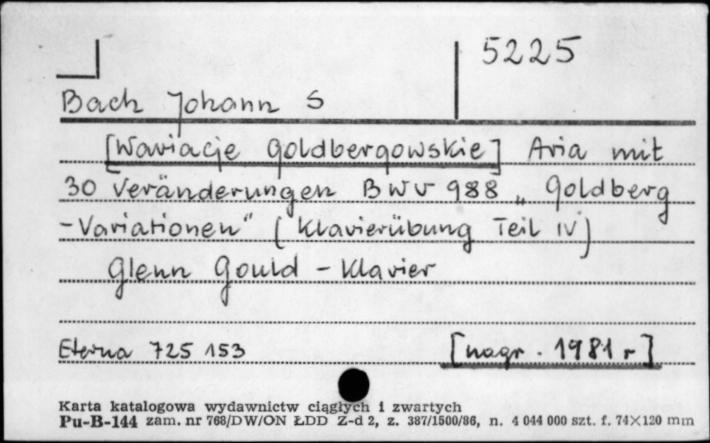 5225
Bach Johann S
[Wariacje Goldbergowskie] Aria mit
30 Veränderungen BWV 988 „Goldberg
-Variationen" (Klavierübung Teil IV)
Glenn Gould - Klavier
Eterna 725 153 [nagr. 1981 r]
Karta katalogowa wydawnictw ciągłych i zwartych
Pu-B-144 zam. nr 768/DW/ON ŁDD Z-d 2, z. 387/1500/86, n. 4 044 000 szt. f. 74×120 mm